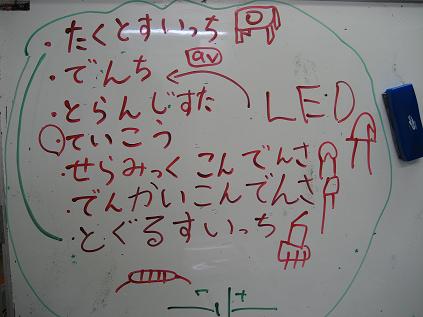 ・たくとすいっち
・でんち
9v
LED
・とらんじすた
・ていこう
・せらみっくこんでんさ
・でんかいこんでんさ
・とぐるすいっち
- +